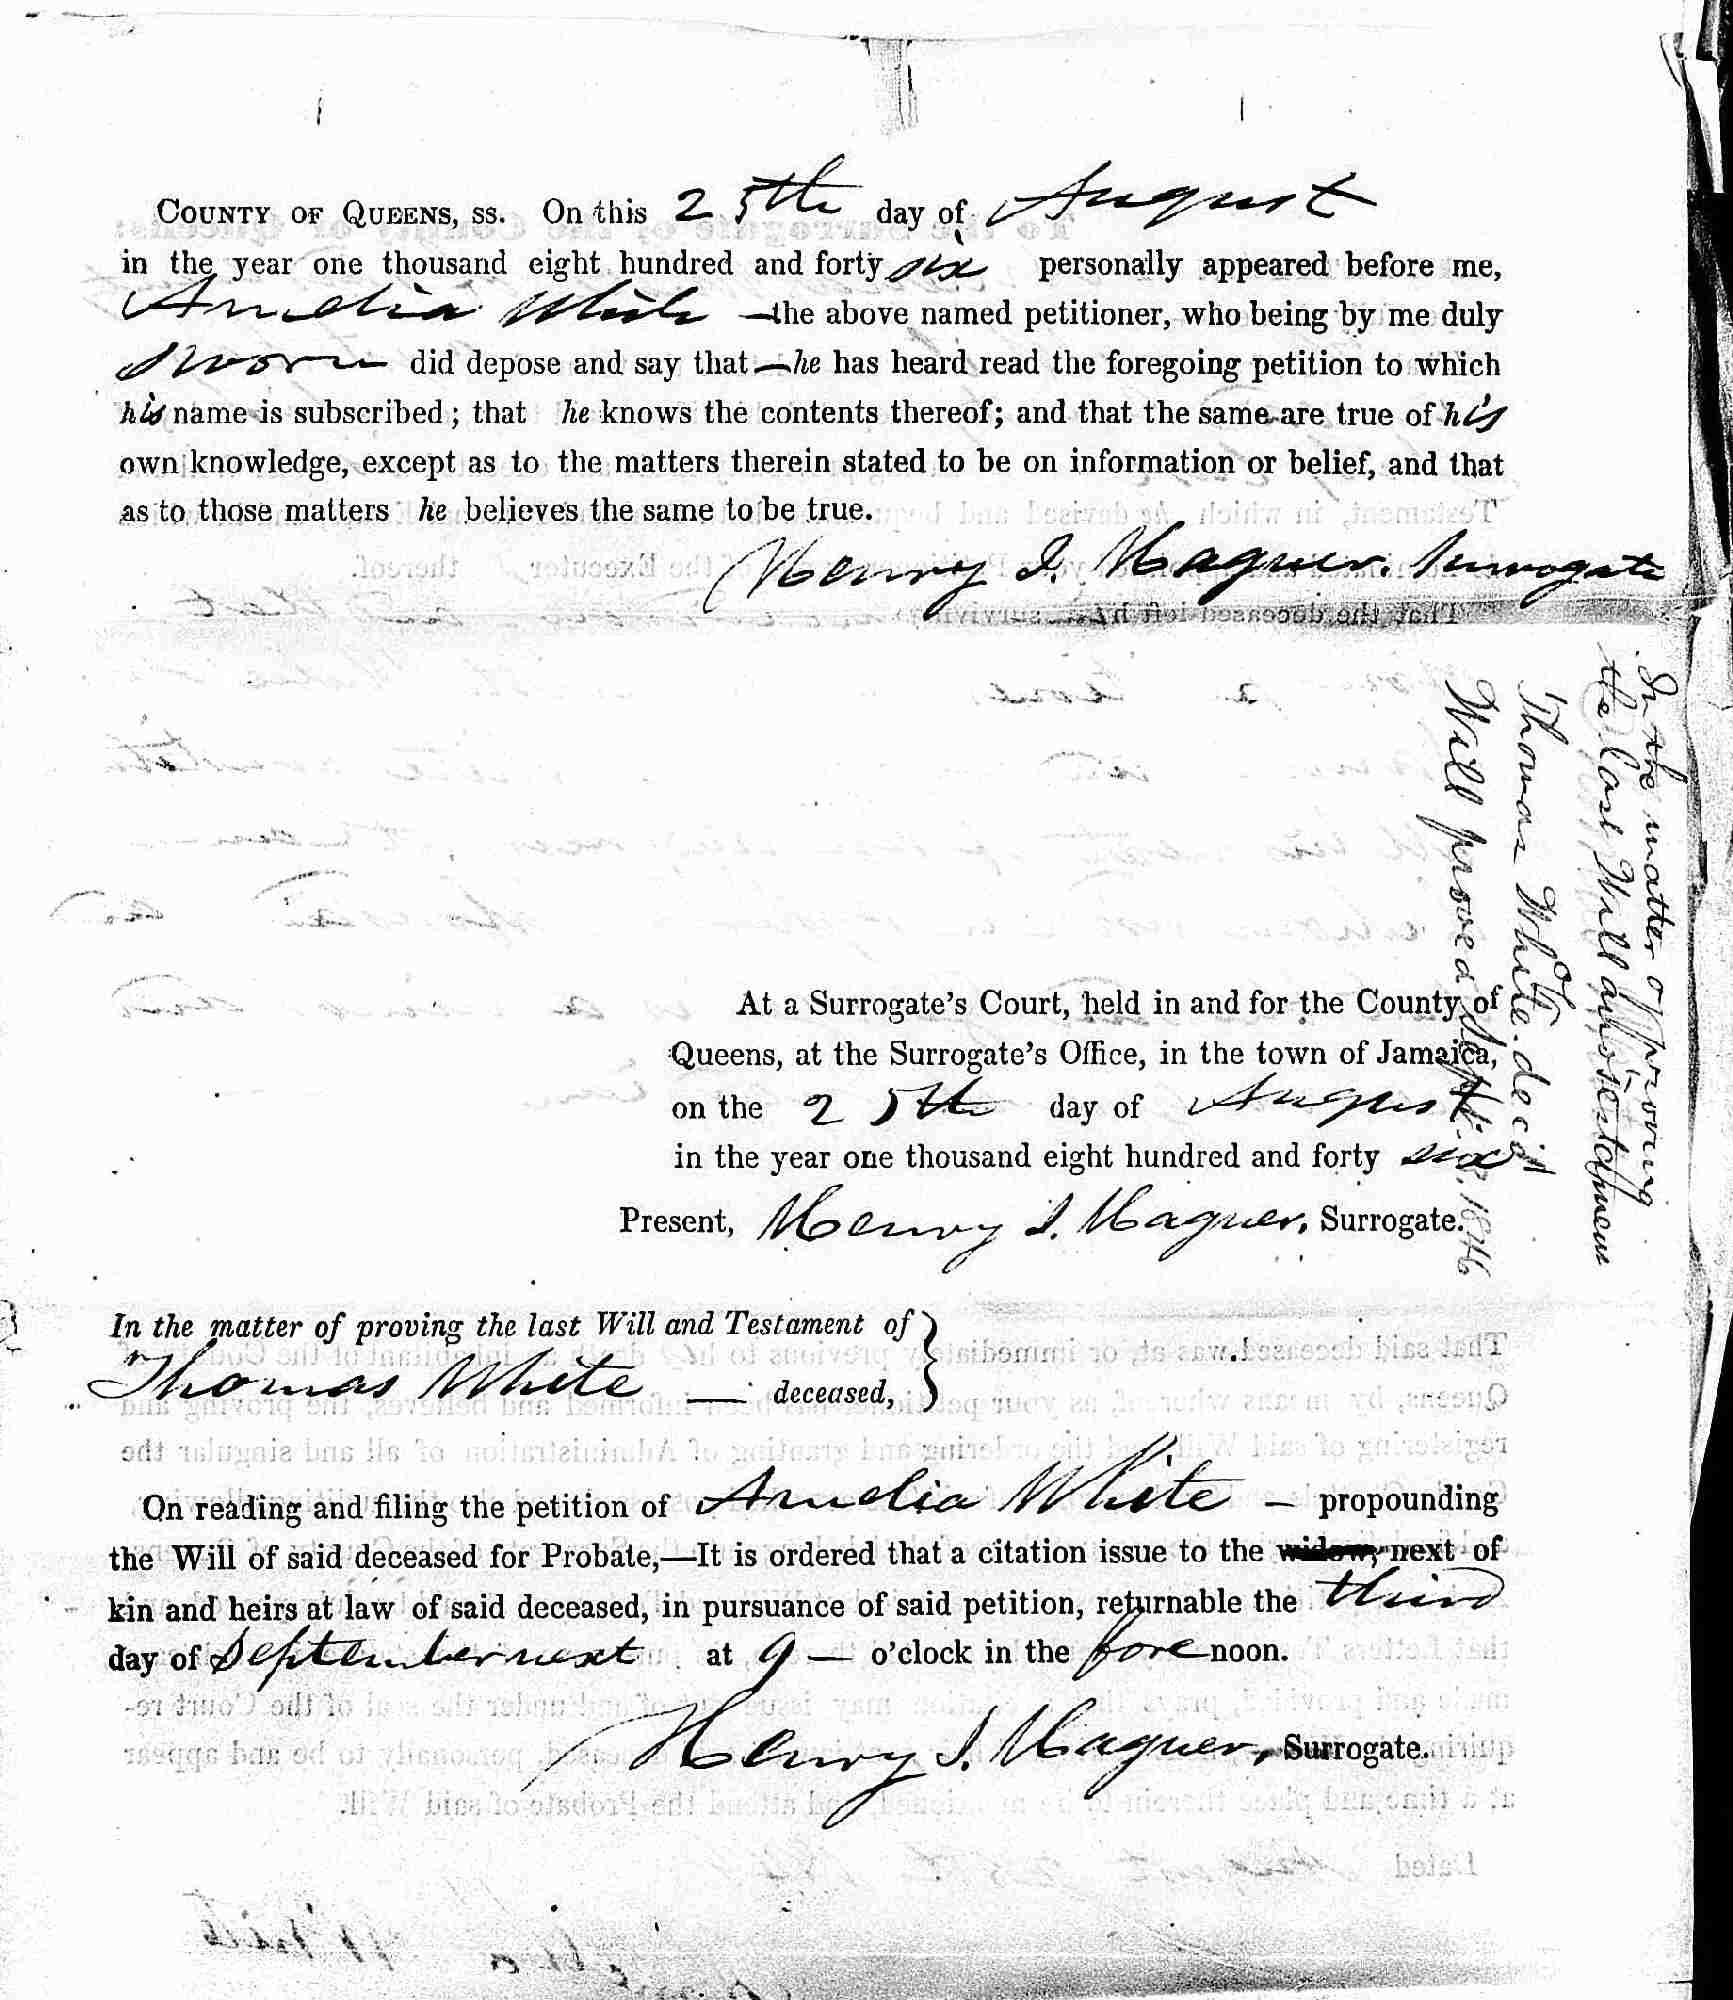 COUNTY OF QUEENS, ss. On this 25th day of August
in the year one thousand eight hundred and forty six personally appeared before me,
Amelia White — the above named petitioner, who being by me duly
sworn did depose and say that — he has heard read the foregoing petition to which
his name is subscribed; that he knows the contents thereof; and that the same are true of his
own knowledge, except as to the matters therein stated to be on information or belief, and that
as to those matters he believes the same to be true.
Henry I. Hagner. Surrogate
In the matter of proving
the last Will and Testament
of
Thomas White. dec'd
Will proved Sept. 3. 1846
At a Surrogate's Court, held in and for the County of
Queens, at the Surrogate's Office, in the town of Jamaica,
on the 25th day of August
in the year one thousand eight hundred and forty six
Present, Henry I. Hagner, Surrogate.
In the matter of proving the last Will and Testament of
Thomas White — deceased,
On reading and filing the petition of Amelia White — propounding
the Will of said deceased for Probate,—It is ordered that a citation issue to the widow, next of
kin and heirs at law of said deceased, in pursuance of said petition, returnable the third
day of September next at 9 — o'clock in the forenoon.
Henry I. Hagner, Surrogate.